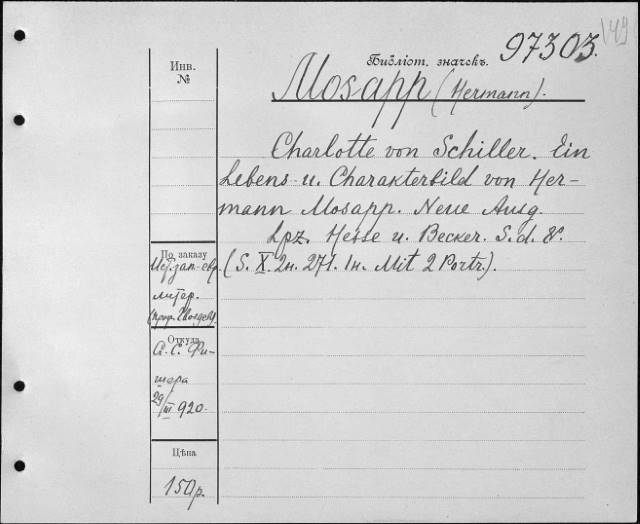 149
97303.
Библіот. значекъ.
Инв.
№
Mosapp (Hermann).
Charlotte von Schiller. Ein
Lebens- u. Charakterbild von Her-
mann Mosapp. Neue Ausg.
Lpz. Hesse u. Becker. S. d. 8°.
(S. X. 2н. 271. 1н. Mit 2 Portr.).
По заказу
Ист. зап-евр.
литер.
(проф.
Откуда
А. С. Фи-
шора
29/III 920.
Цѣна
150 р.